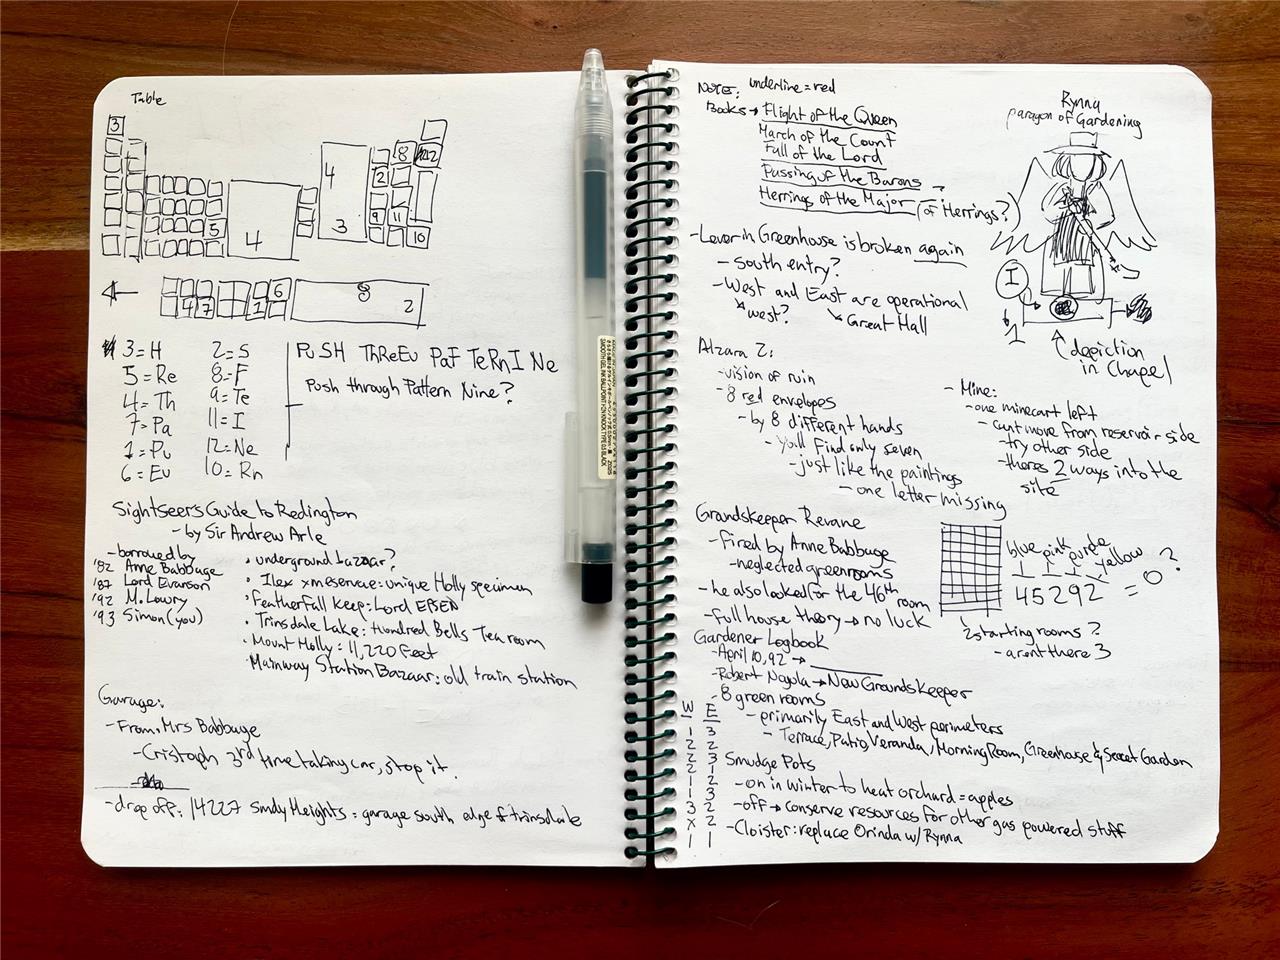 Table
3
5
4
4
3
8
12
2
9
11
10
6
4
7
1
8
2
3=H
2=S
5=Re
8=F
4=Th
9=Te
7=Pa
11=I
1=Pu
12=Ne
6=Eu
10=Rn
PuSH ThReEu PaF TeRnI Ne
Push through Pattern Nine?
Sightseer's Guide to Redington
- by Sir Andrew Arle
- borrowed by
'82 Anne Babbage
'87 Lord Evanson
'92 M. Lowry
'93 Simon (you)
• underground bazaar?
• Ilex xmeservae: unique Holly specimen
• Featherfall Keep: Lord EBSEN
• Trinsdale Lake: Hundred Bells Tearoom
• Mount Holly = 11,220 feet
• Mainway Station Bazaar: old train station
Garage:
- From Mrs Babbage
- Cristoph 3rd time taking car, stop it.
- drop off: 14227 Smdy Heights = garage south edge of trinsdale
Note: underline = red
Books → Flight of the Queen
March of the Count
Fall of the Lord
Passing of the Barons
Herrings of the Major (of Herrings?
Rynna
paragon of Gardening
- Lever in Greenhouse is broken again
- South entry?
- West and East are operational
west?
Great Hall
I
1
depiction
in Chapel
Alzara 2:
- vision of ruin
- 8 red envelopes
- by 8 different hands
- you'll find only seven
- just like the paintings
- one letter missing
- Mine:
- one minecart left
- cant move from reservoir side
- try other side
- theres 2 ways into the
site
Groundskeeper Revane
- Fired by Anne Babbage
- neglected greenrooms
- he also looked for the 46th
room
- full house theory → no luck
blue pink purple yellow
45292 = 0 ?
2 starting rooms?
- arent there 3
Gardener Logbook
- April 10, 92 →
- Robert Nagula → New Groundskeeper
- 8 green rooms
- primarily East and West perimeters
- Terrace, Patio, Veranda, Morning Room, Greenhouse & Secret Garden
W E
1 3
2 2
2 3
2 1
1 2
1 3
3 2
x 2
1 1
Smudge Pots
- on in winter to heat orchard = apples
- off → conserve resources for other gas powered stuff
- Cloister: replace Orinda w/ Rynna